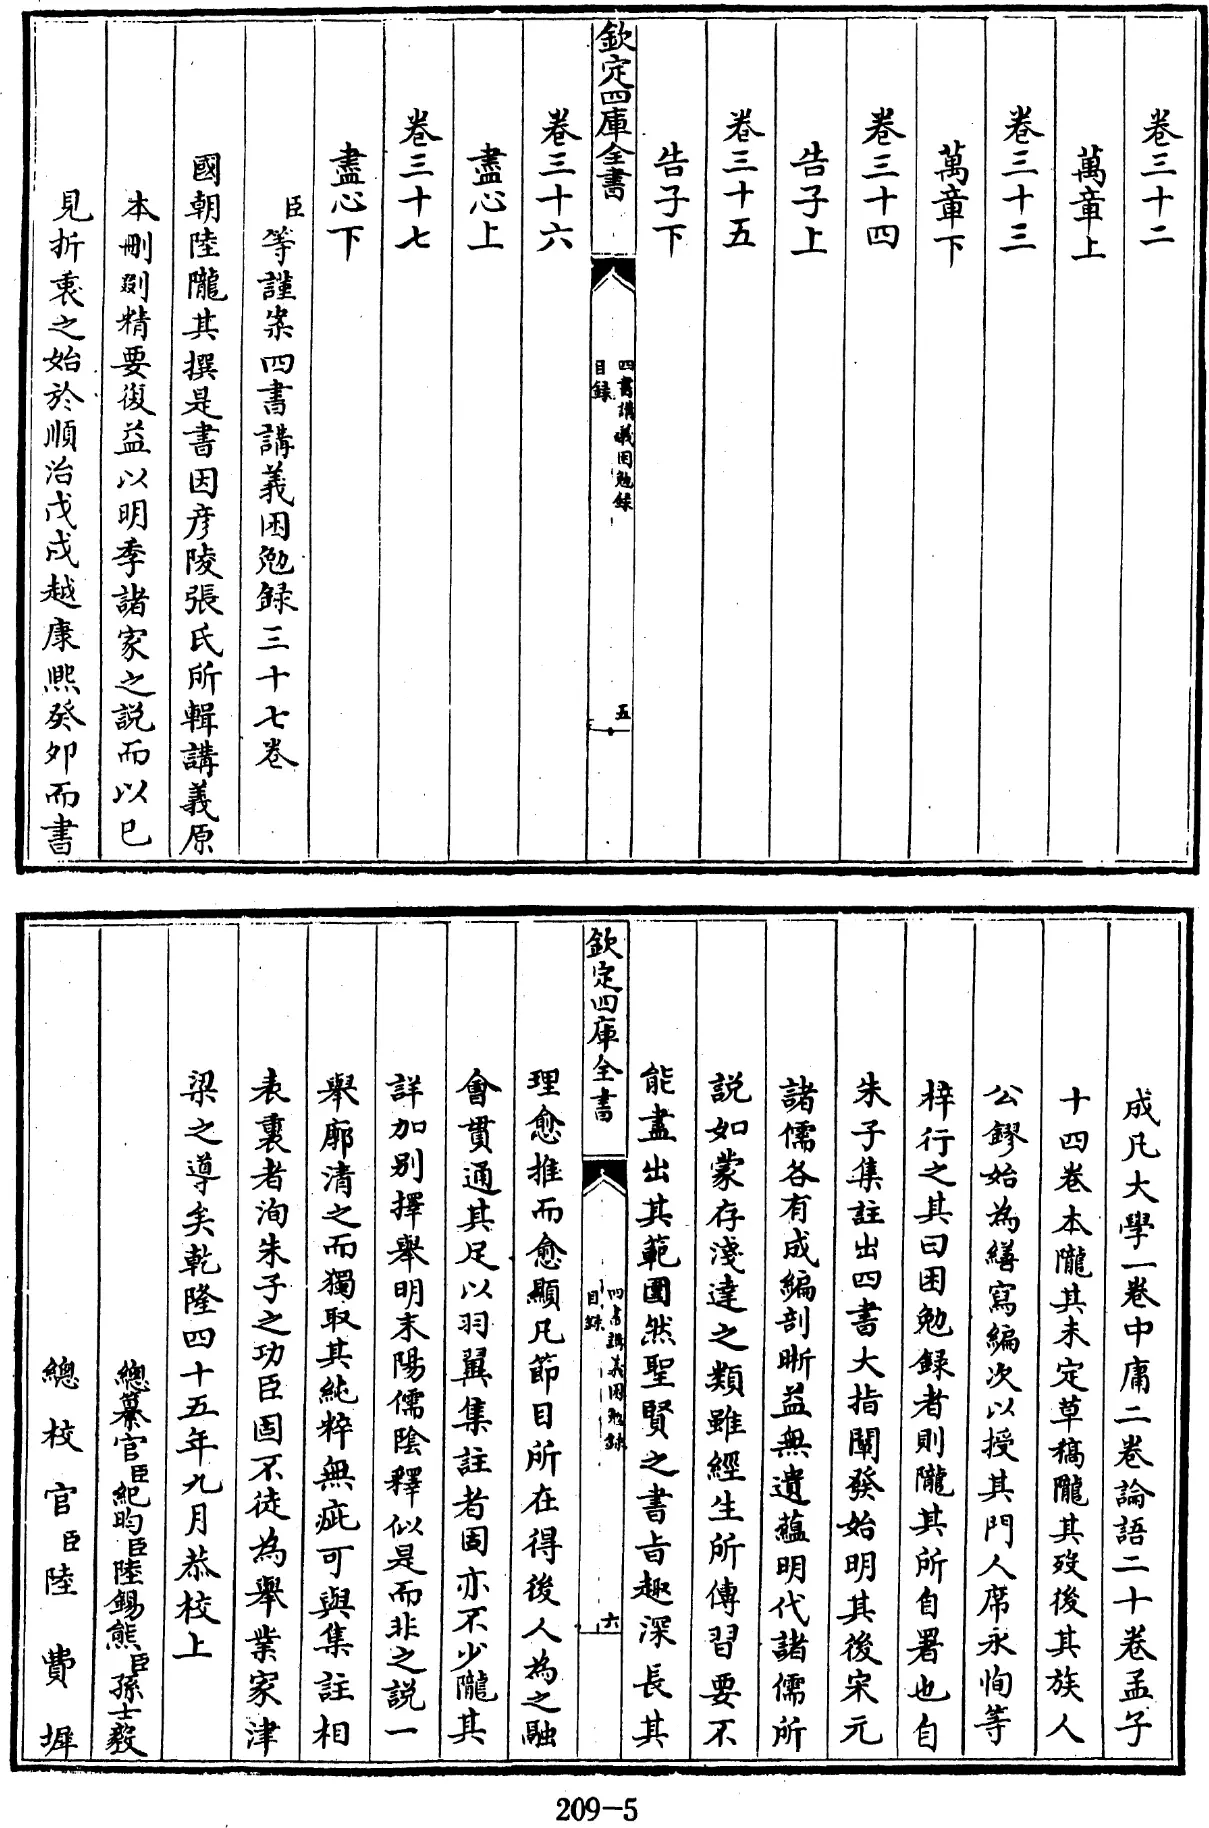 卷三十二
萬章上
卷三十三
萬章下
卷三十四
告子上
卷三十五
告子下
欽定四庫全書
四書講義困勉錄
目録
五
卷三十六
盡心上
卷三十七
盡心下
臣等謹案四書講義困勉録三十七卷
國朝陸隴其撰是書因彦陵張氏所輯講義原
本刪剟精要復益以明季諸家之説而以已
見折衷之始於順治戊戌越康熙癸夘而書
成凡大學一卷中庸二卷論語二十卷孟子
十四卷本隴其未定草稿隴其歿後其族人
公鏐始為繕寫編次以授其門人席永恂等
梓行之其曰困勉録者則隴其所自署也自
朱子集註出四書大指闡發始明其後宋元
諸儒各有成編剖晰益無遺藴明代諸儒所
説如蒙存淺達之類雖經生所傳習要不
能盡出其範圍然聖賢之書旨趣深長其
欽定四庫全書
四書講義困勉錄
目録
六
理愈推而愈顯凡節目所在得後人為之融
會貫通其足以羽翼集註者固亦不少隴其
詳加别擇舉明末陽儒陰釋似是而非之説一
舉廓清之而獨取其純粹無疵可與集註相
表裏者洵朱子之功臣固不徒為舉業家津
梁之導矣乾隆四十五年九月恭校上
總纂官臣紀昀臣陸錫熊臣孫士毅
總校官臣陸費墀
209-5